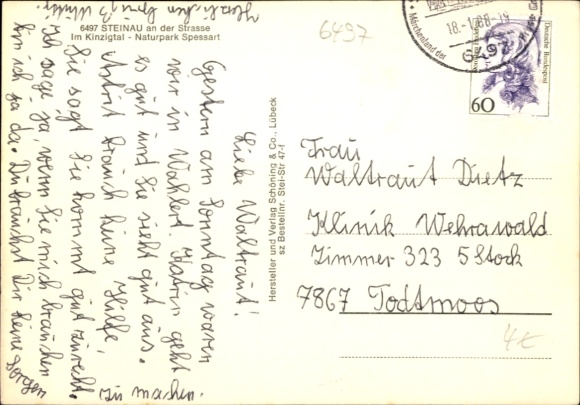 6497 STEINAU an der Strasse
Im Kinzigtal - Naturpark Spessart
6497
18.-1.88-19
Märchenland der
6497
Deutsche Bundespost
60
Liebe Waltraut!
Gestern am Sonntag waren
wir in Wahlert. Katrin geht
es gut und Sie sieht gut aus.
Astrit brauch keine Hilfe,
Sie sagt Sie kommt gut zurecht.
Ich sage ja, wenn Sie mich brauchen
bin ich ja da. Du brauchst Dir keine Sorgen
zu machen.
Herzlichen
Hersteller und Verlag Schöning & Co., Lübeck
sz Bestellnr. Stei-Str 47-f
Frau
Waltraut Dietz
Klinik Wehrawald
Zimmer 323 5 Stock
7867 Todtmoos
4€